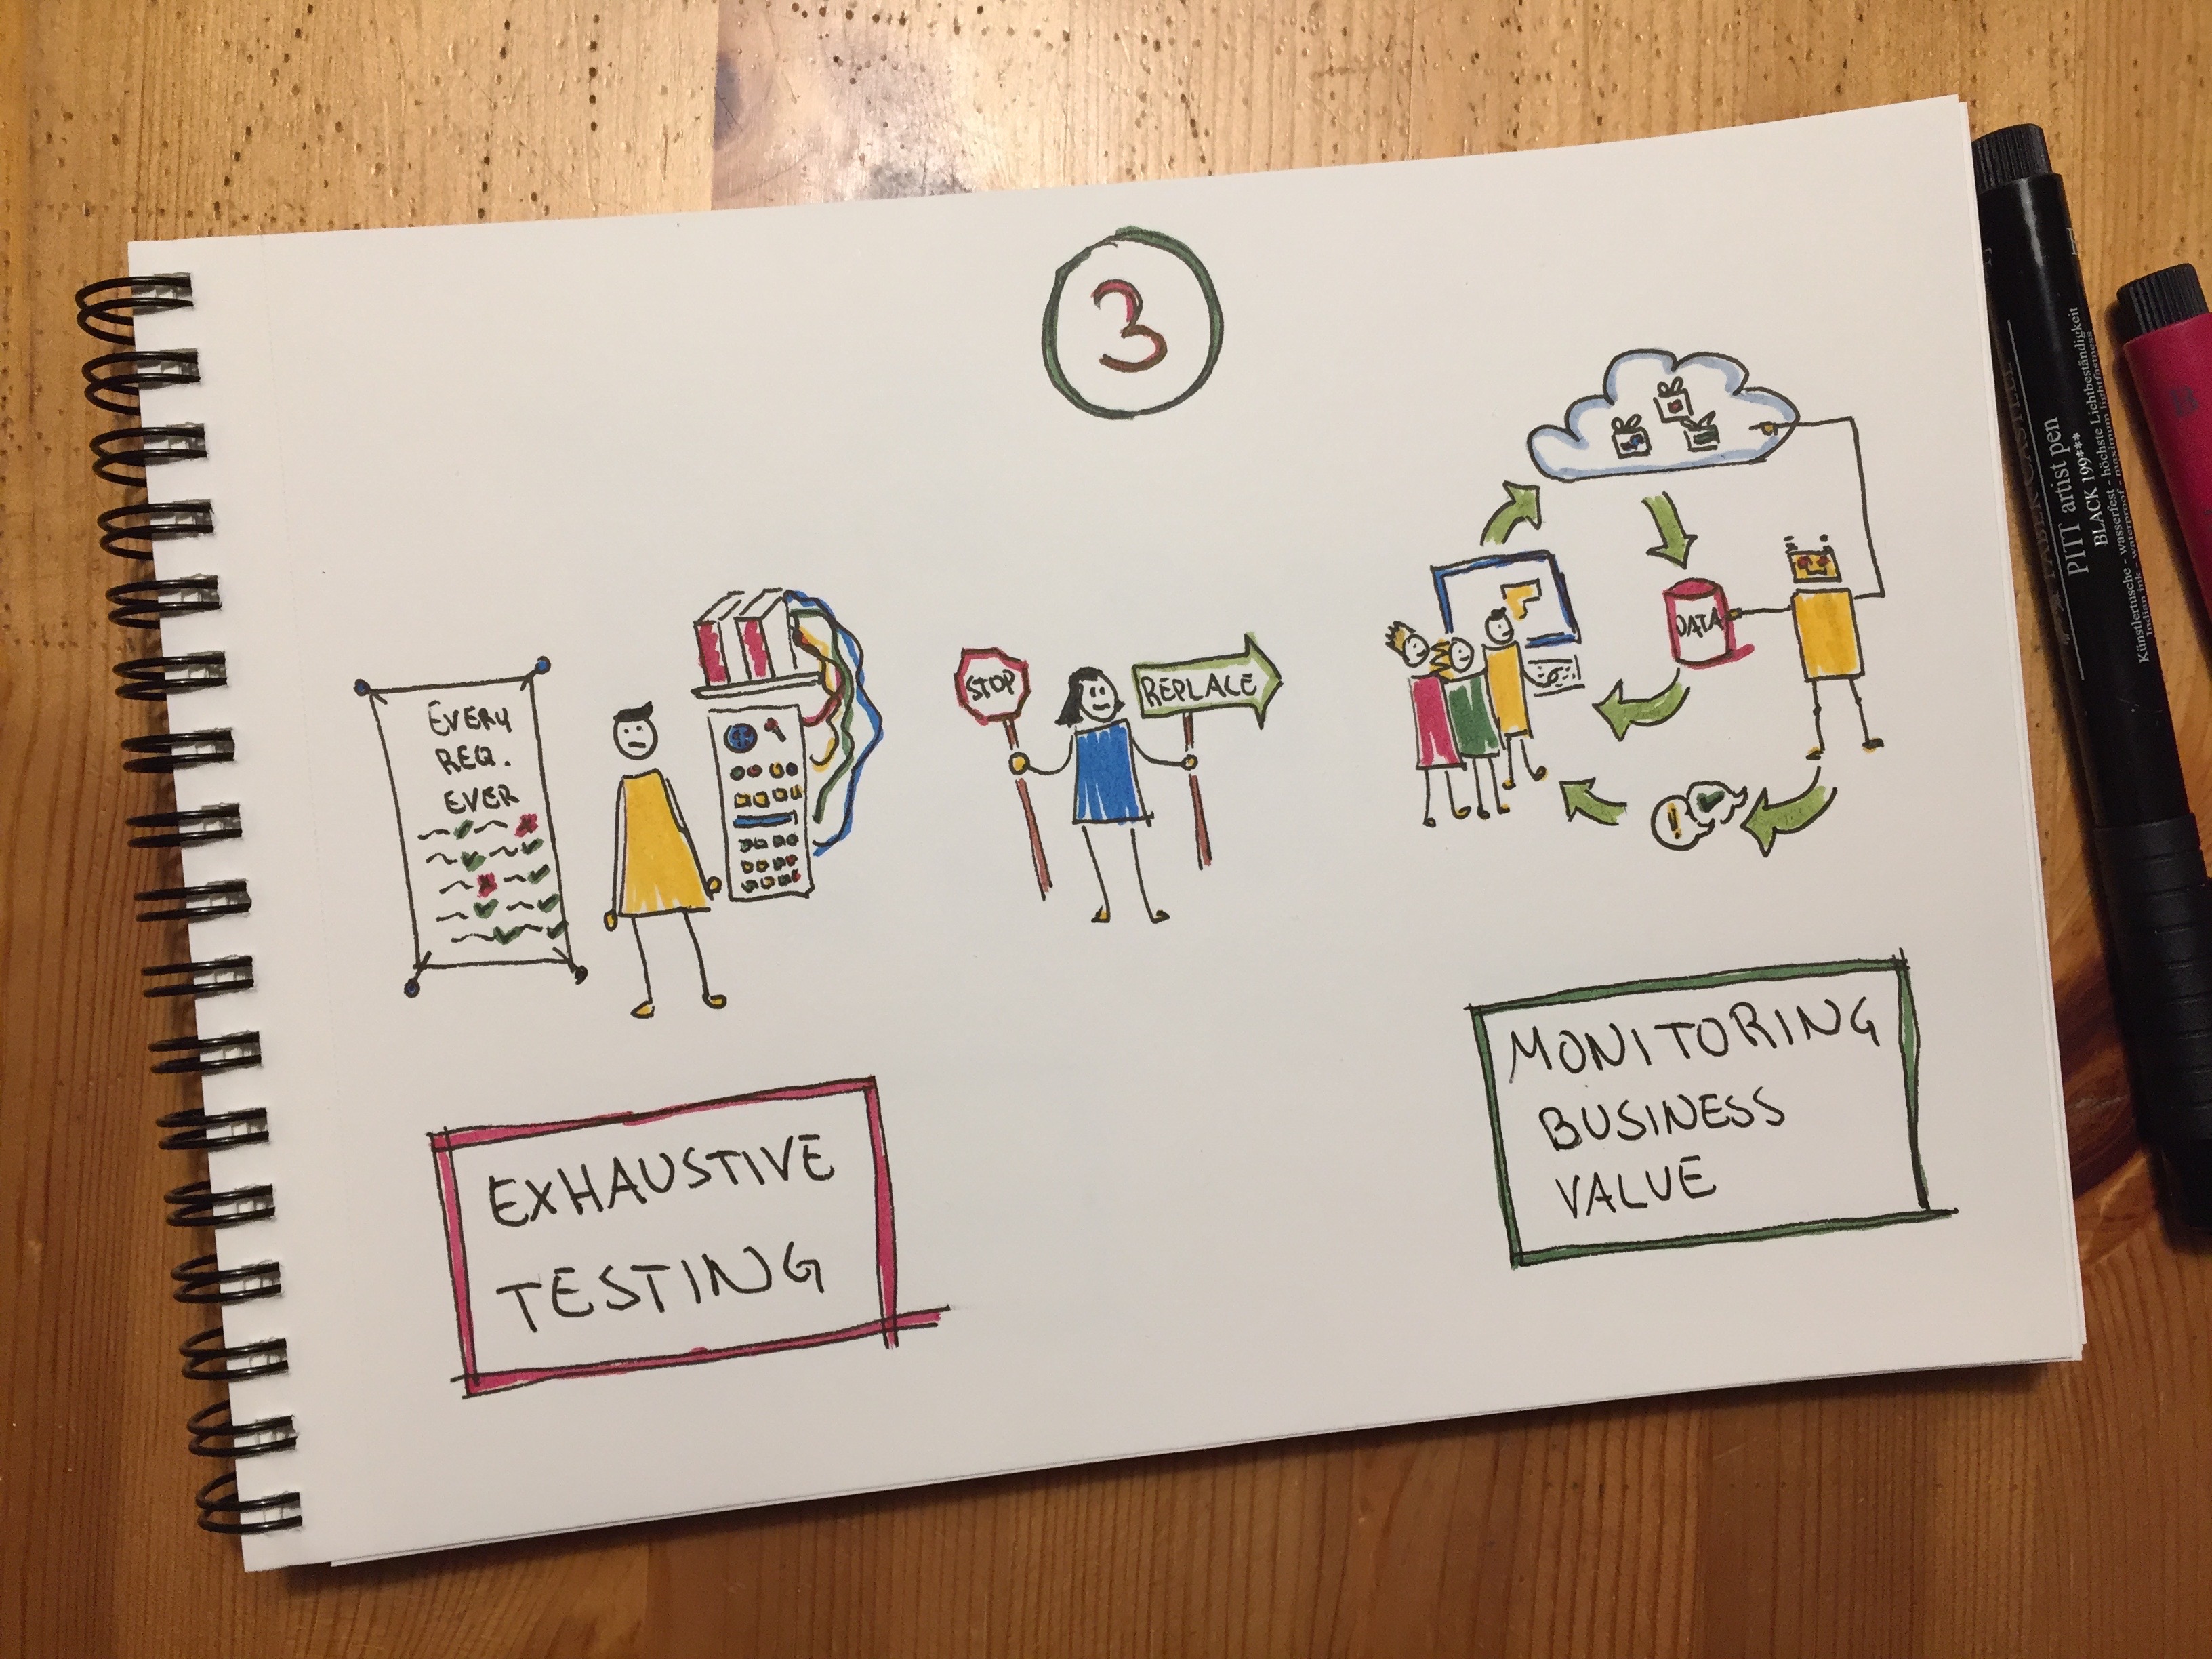 3
EVERY
REQ.
EVER
STOP
REPLACE
DATA
!
EXHAUSTIVE
TESTING
MONITORING
BUSINESS
VALUE
PITT artist pen
BLACK 199***
Künstlertusche - wasserfest - höchste Lichtbeständigkeit
Indian ink - waterproof - maximum lightfastness
B